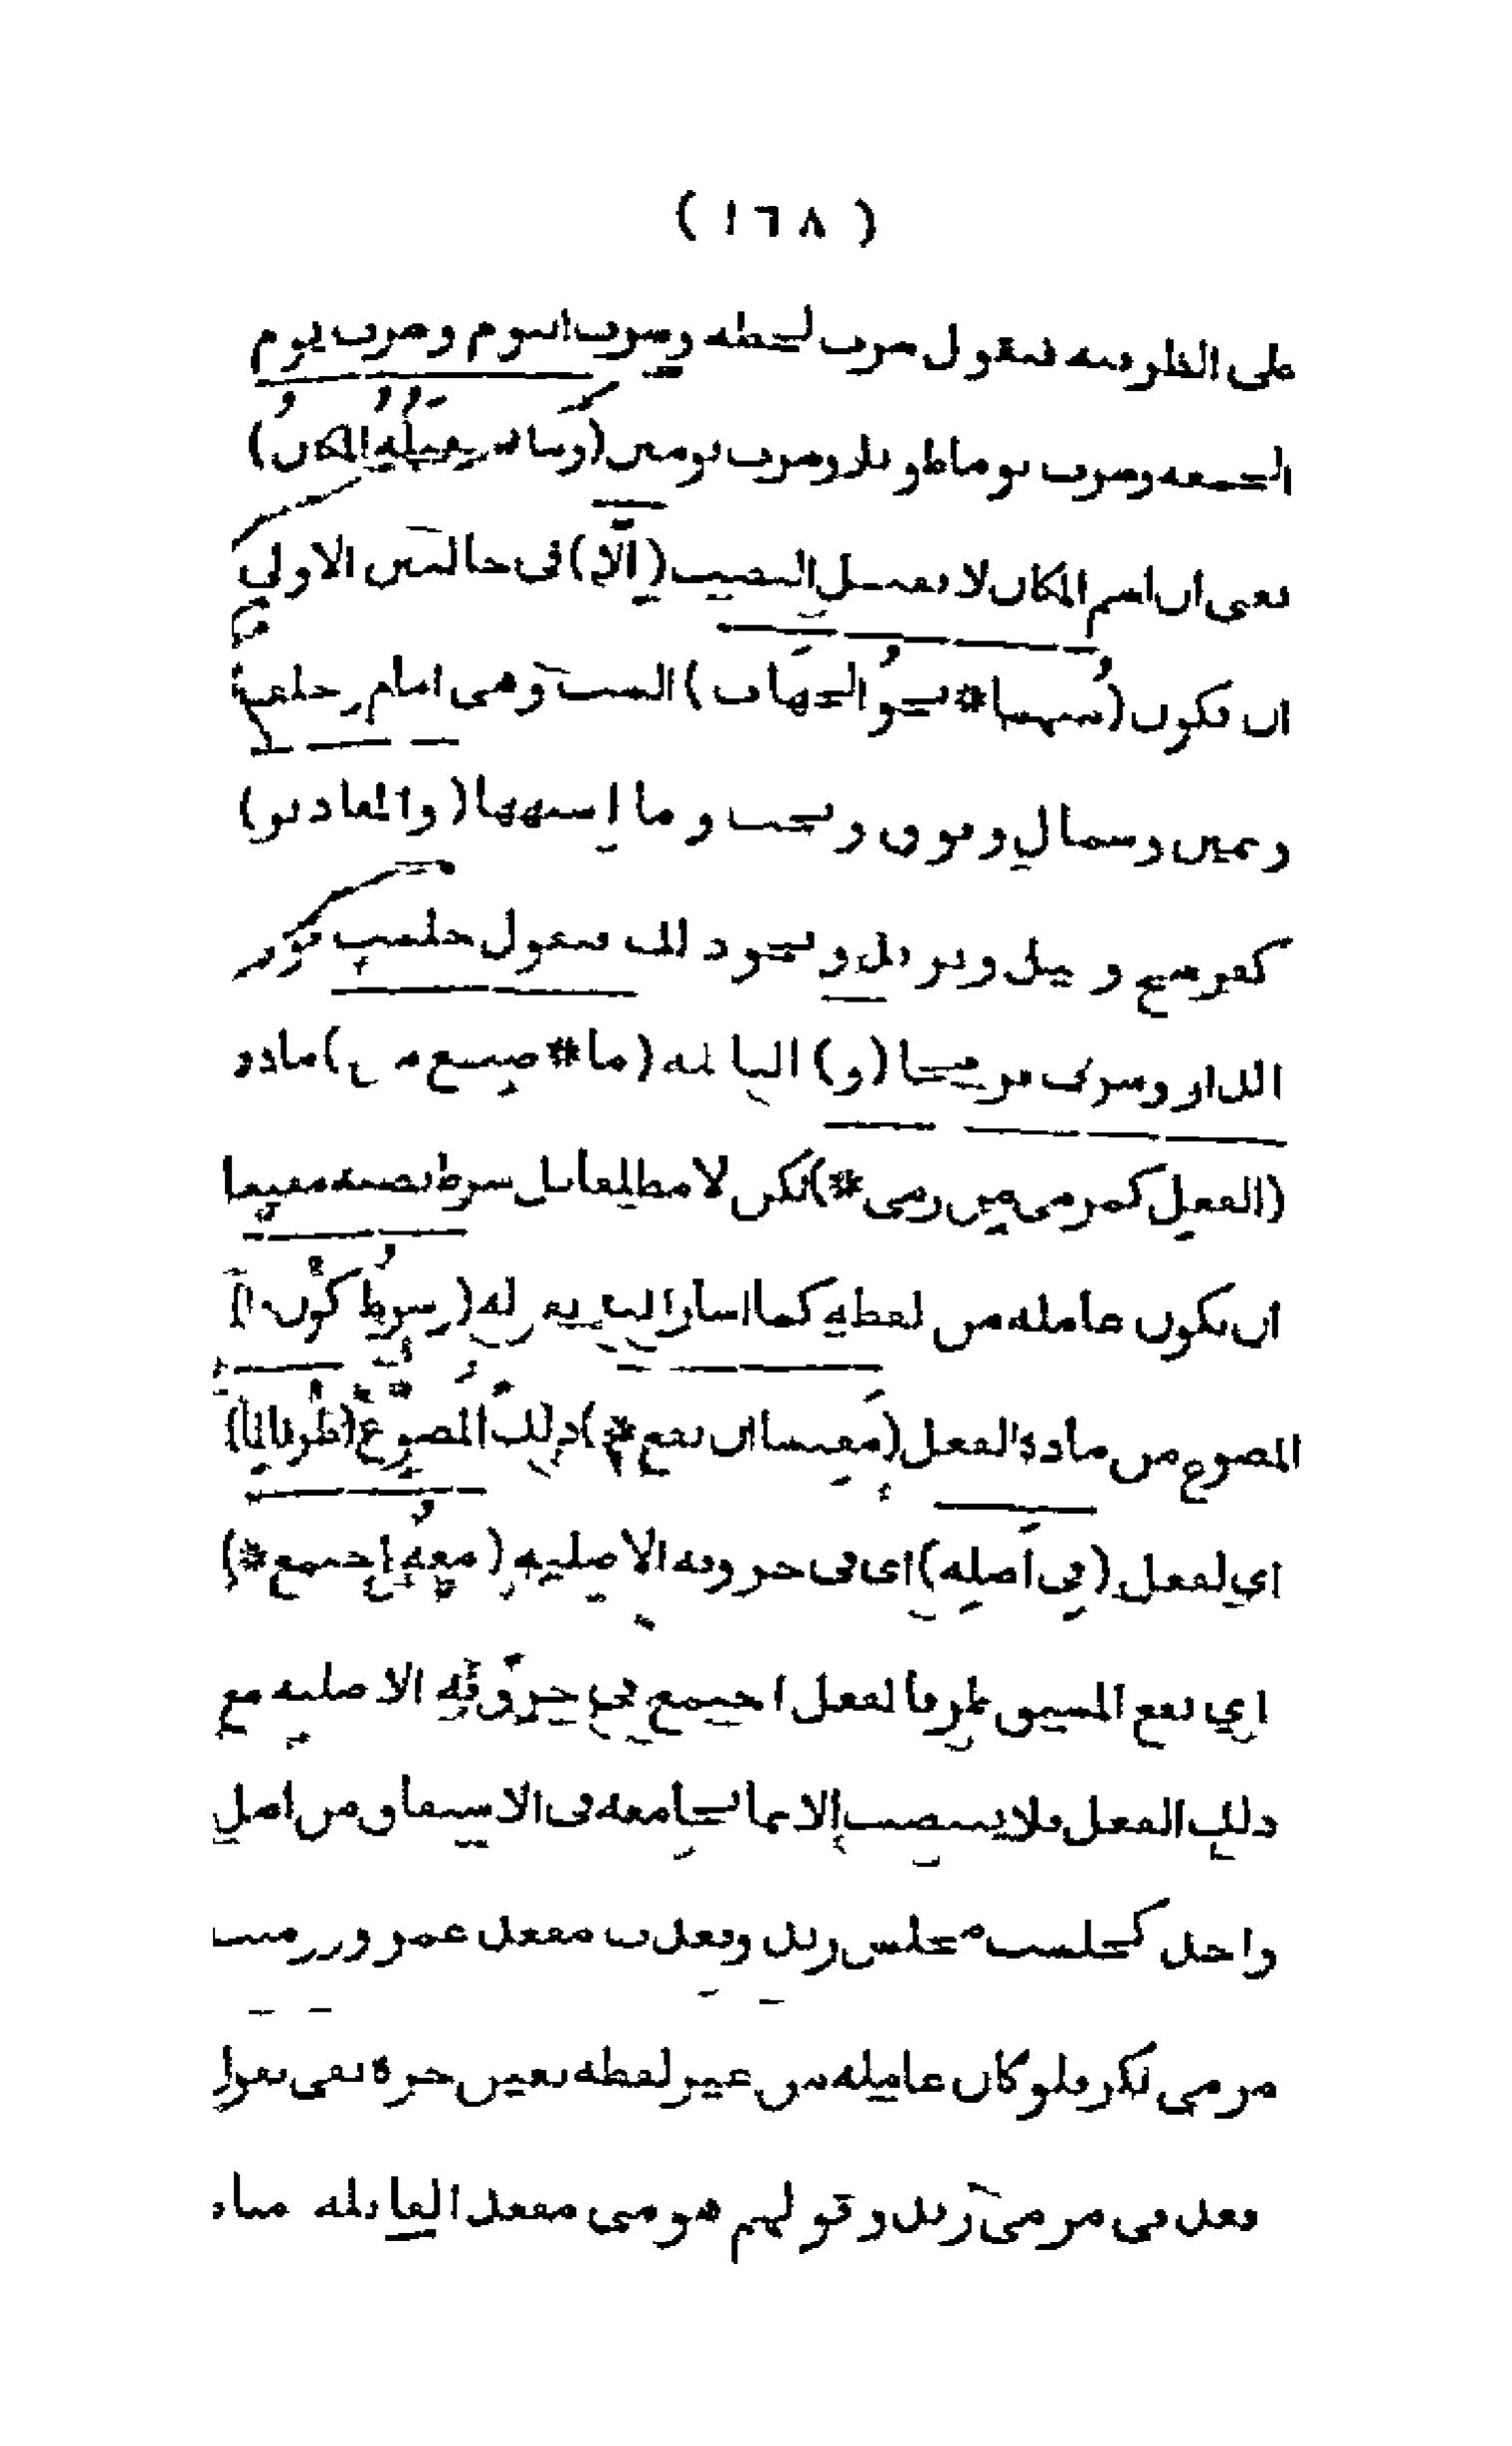 ( ١٦٨ )
على الظرفيه فتقول صرت لحظه وسرت اليوم وصرت يوم
الجمعه وصرت يوما طويلا وصرت يومين (وما يقبله المكان)
يعنى ان اسم المكان لا يقبل النصب (الا) فى حالتين الاولى
ان يكون (مبهما * نحو الجهات) الست وهى امام وخلف
ويمين وشمال وفوق وتحت وما اشبهها (والمقادير)
كفرسخ وميل وبريد ونحو ذلك فتقول جلست فوق
الدار وسرت فرسخا (و) الثانيه (ما * صيغ من) ماده
(الفعل كمرمى من رمى *) لكن لا مطلقا بل شرط نصبه مقيسا
ان يكون عامله من لفظه كما اشار اليه بقوله (وشرط كون ذا)
المصوغ من مادة الفعل (مقيسا ان يقع *) ذلك المصوغ (ظرفا لما)
اى لفعل (فى اصله) اى فى حروفه الاصليه (معه اجتمع *)
اى يقع المسبوق ظرفا لفعل اجتمع فى حروفه الاصليه مع
ذلك الفعل فلا ينتصب الا بما يجامعه فى الاشتقاق من اصل
واحد كجلست مجلس زيد وقعدت مقعد عمرو ورميت
مرمى بكر فلو كان عامله من غير لفظه تعين جره بفى نحو
قعد فى مرمى زيد وقولهم هو منى مقعد القابله